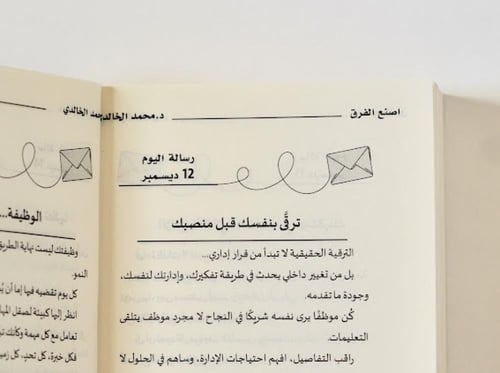 اصنع الفرق
د.محمد الخالدي
رسالة اليوم
12 ديسمبر
ترقَّ بنفسك قبل منصبك
الترقية الحقيقية لا تبدأ من قرار إداري..
بل من تغيير داخلي يحدث في طريقة تفكيرك، وإدارتك لنفسك،
وجودة ما تقدمه.
كُن موظفًا يرى نفسه شريكًا في النجاح لا مجرد موظف يتلقى
التعليمات.
راقب التفاصيل، افهم احتياجات الإدارة، وساهم في الحلول لا
الخالدي
الوظيفة...
وظيفتك ليست نهاية الطريق
النمو.
كل يوم تقضيه فيها إما أن
انظر إليها كبيئة لصقل
تعامل مع كل مهمة وكأنك
فكل خبرة، كل تحدٍ، كل